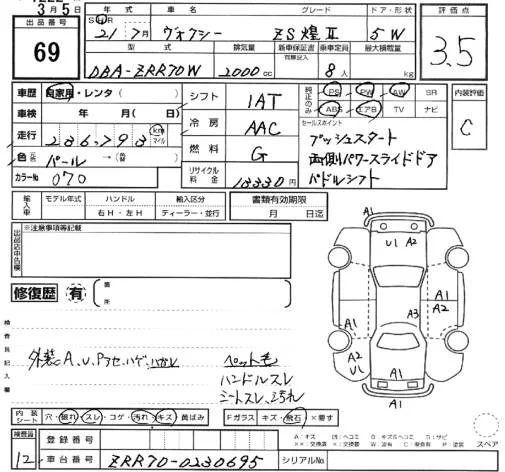 3月5
出品番号
69
年式
車名
グレード
ドア・形状
21 / 7月
ヴォクシー
ZS 煌 II
5W
評価点
3.5
型式
排気量
新車保証書
有無記入
乗車定員
最大積載量
DBA-ZRR70W
2000cc
8人
kg
車歴
自家用・レンタ( )
車検
年 月( )
走行
236,793
km
マイル
色
パール→( )
カラーNo
070
シフト
IAT
冷房
AAC
燃料
G
リサイクル料金
13330円
純正のみ
PS
PW
AW
SR
ABS
エアB
TV
ナビ
内装評価
C
セールスポイント
プッシュスタート
両側パワースライドドア
パドルシフト
輸入車
モデル年式
ハンドル
輸入区分
右H・左H
ディーラー・並行
書類有効期限
月 日迄
出品店申告欄
※注意事項等記載
修復歴
有
箇所
検査員記入欄
外装A、U、プラセ、ハゲ、ハガレ
ペット毛
ハンドルスレ
シートスレ、汚れ
A1
U1
A2
A1
A1
A1
A3
A1
A2
U1
A2
A1
内装シート
穴・破れ・スレ・コゲ・汚れ・キズ・黄ばみ
Fガラス
キズ・飛石・×要す
スペア
検査員
12
登録番号
車台番号
ZRR70-0230695
シリアルNo.